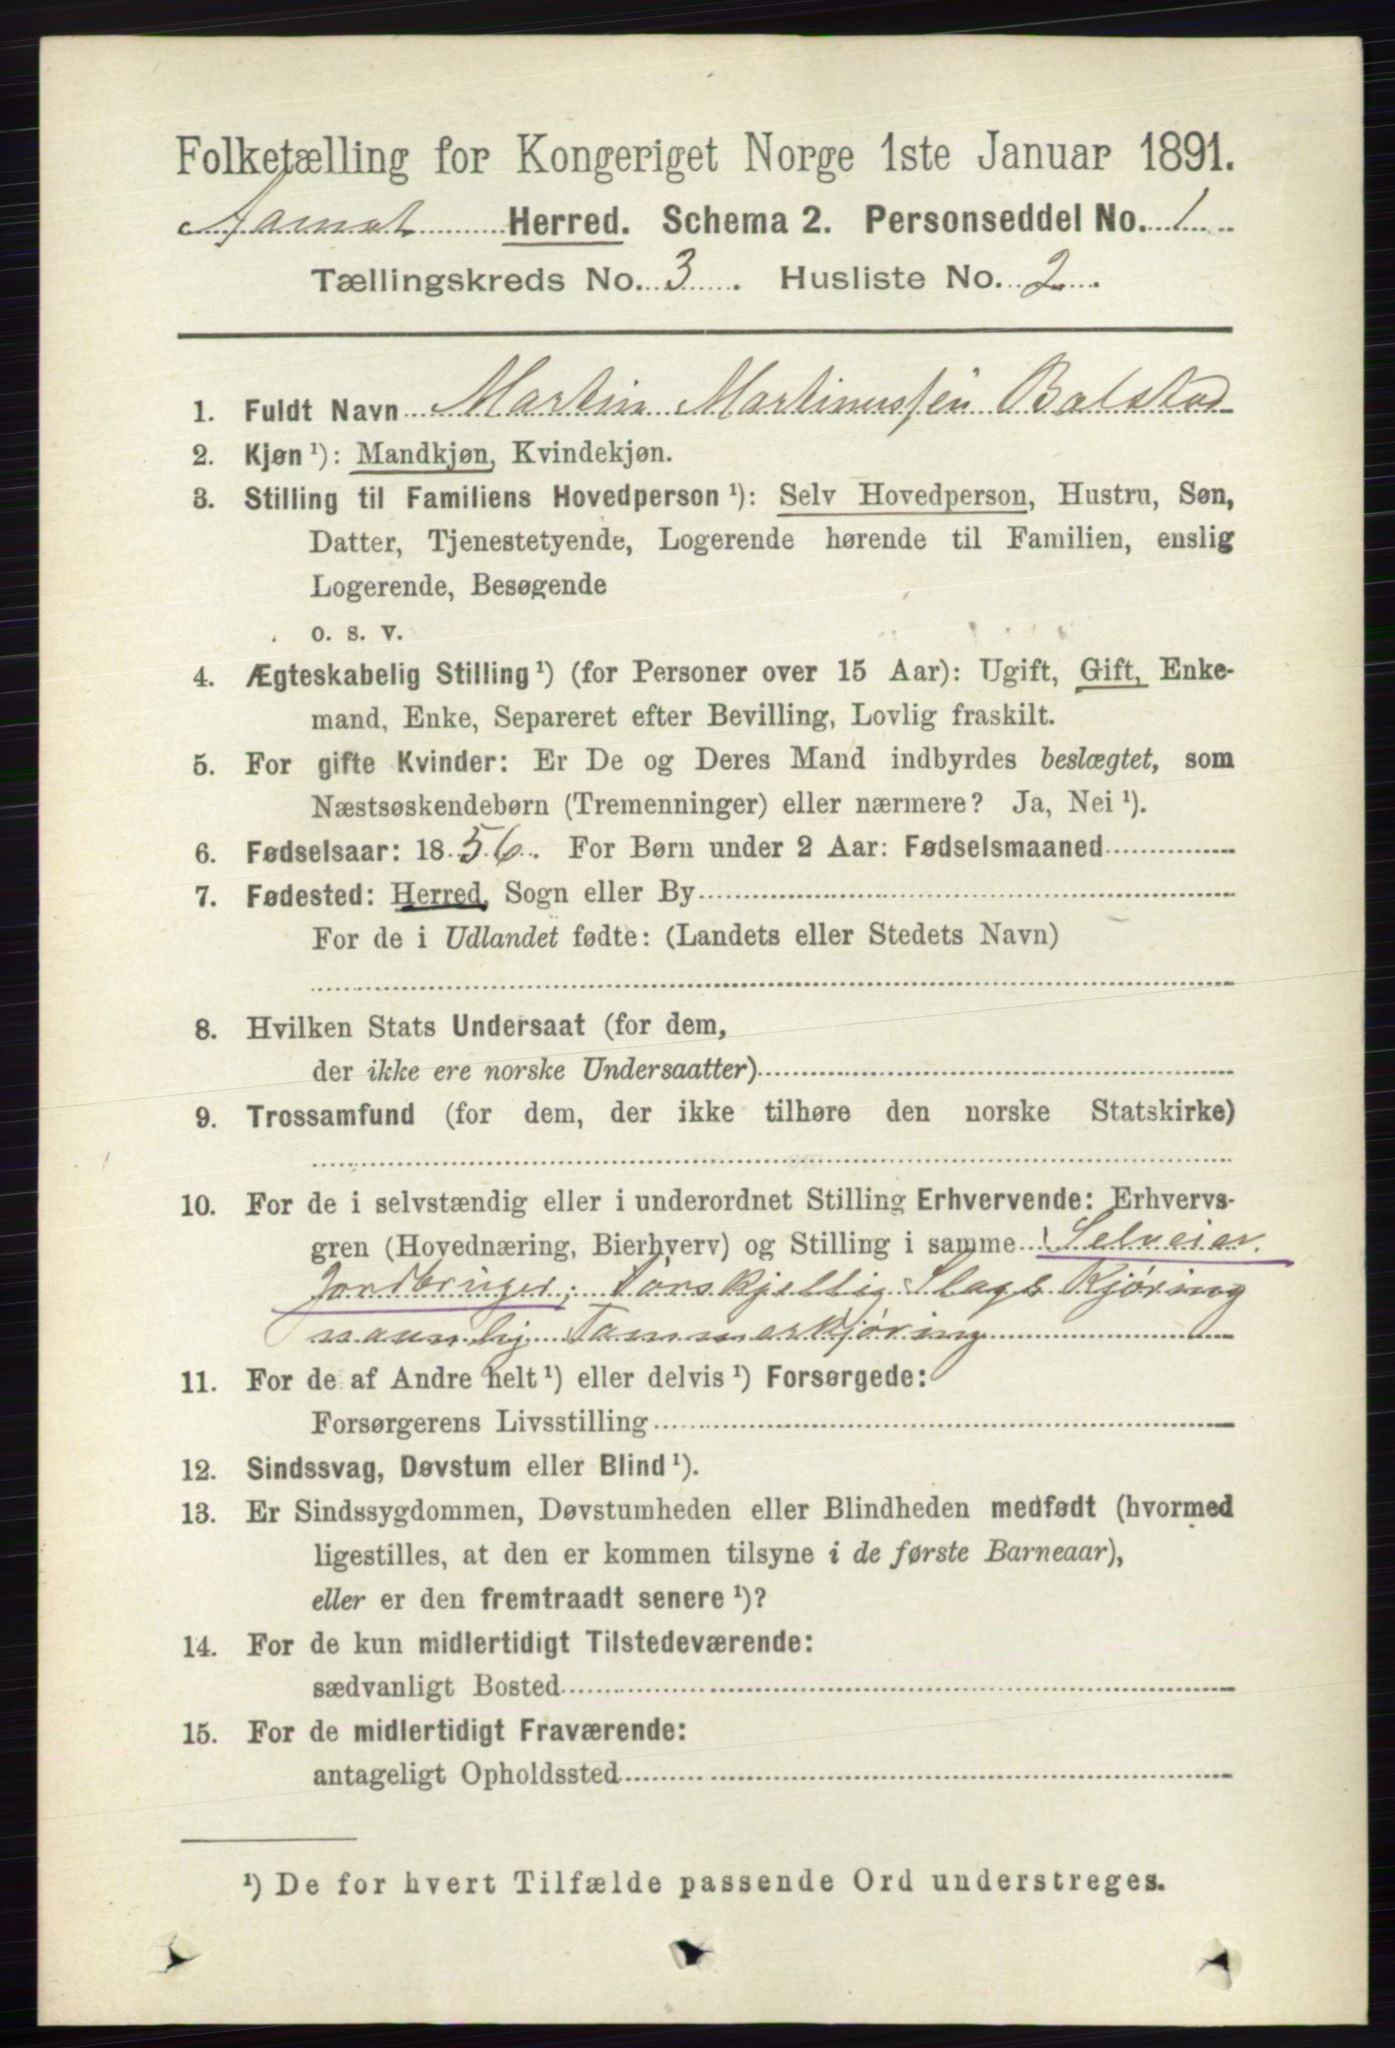 Folketælling for Kongeriget Norge 1ste Januar 1891.
Aamot Herred. Schema 2. Personseddel No. 1
Tællingskreds No. 3. Husliste No. 2.
1. Fuldt Navn Martin Martinussen Balstad
2. Kjøn ¹): Mandkjøn, Kvindekjøn.
3. Stilling til Familiens Hovedperson ¹): Selv Hovedperson, Hustru, Søn,
Datter, Tjenestetyende, Logerende hørende til Familien, enslig
Logerende, Besøgende
o. s. v.
4. Ægteskabelig Stilling ¹) (for Personer over 15 Aar): Ugift, Gift, Enke-
mand, Enke, Separeret efter Bevilling, Lovlig fraskilt.
5. For gifte Kvinder: Er De og Deres Mand indbyrdes beslægtet, som
Næstsøskendebørn (Tremenninger) eller nærmere? Ja, Nei ¹).
6. Fødselsaar: 1856. For Børn under 2 Aar: Fødselsmaaned
7. Fødested: Herred, Sogn eller By
For de i Udlandet fødte: (Landets eller Stedets Navn)
8. Hvilken Stats Undersaat (for dem,
der ikke ere norske Undersaatter)
9. Trossamfund (for dem, der ikke tilhøre den norske Statskirke)
10. For de i selvstændig eller i underordnet Stilling Erhvervende: Erhvervs-
gren (Hovednæring, Bierhverv) og Stilling i samme Selveier
Jordbruger; forskjellig Slags Kjøring
navnlig Tømmerkjøring
11. For de af Andre helt ¹) eller delvis ¹) Forsørgede:
Forsørgerens Livsstilling
12. Sindssvag, Døvstum eller Blind ¹).
13. Er Sindssygdommen, Døvstumheden eller Blindheden medfødt (hvormed
ligestilles, at den er kommen tilsyne i de første Barneaar),
eller er den fremtraadt senere ¹)?
14. For de kun midlertidigt Tilstedeværende:
sædvanligt Bosted
15. For de midlertidigt Fraværende:
antageligt Opholdssted
¹) De for hvert Tilfælde passende Ord understreges.